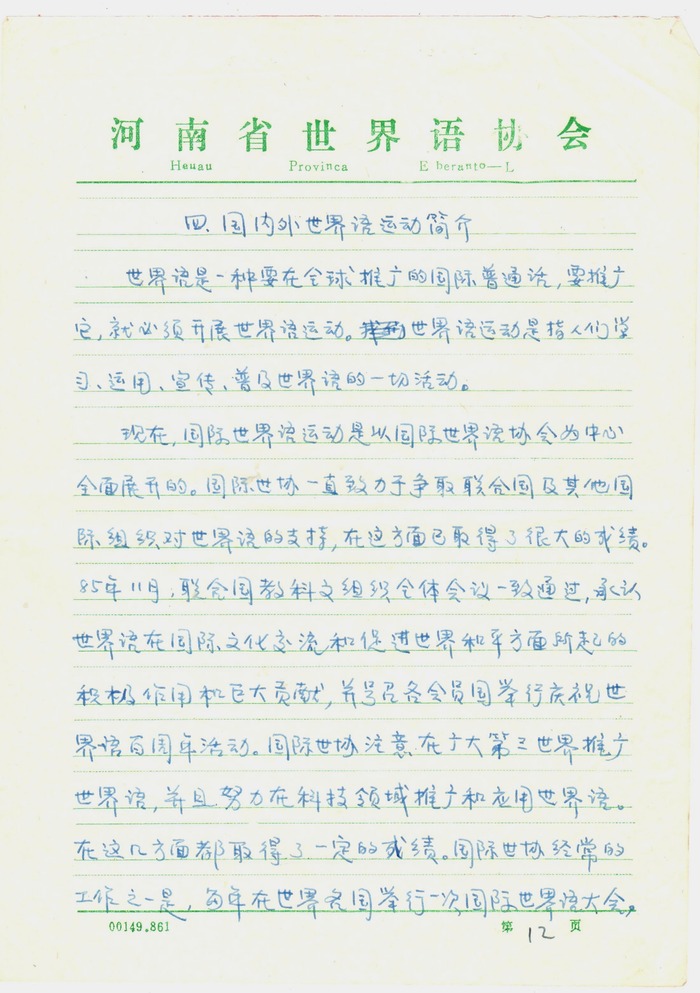 河南省世界语协会
Heuau Provinca E beranto—L
四.国内外世界语运动简介
世界语是一种要在全球推广的国际普通话,要推广
它,就必须开展世界语运动。世界语运动是指人们学
习、运用、宣传、普及世界语的一切活动。
现在,国际世界语运动是以国际世界语协会为中心
全面展开的。国际世协一直致力于争取联合国及其他国
际组织对世界语的支持,在这方面已取得了很大的成绩。
85年11月,联合国教科文组织全体会议一致通过,承认
世界语在国际文化交流和促进世界和平方面所起的
积极作用和巨大贡献,并号召各会员国举行庆祝世
界语百周年活动。国际世协注意在广大第三世界推广
世界语,并且努力在科技领域推广和应用世界语。
在这几方面都取得了一定的成绩。国际世协经常的
工作之一是,每年在世界各国举行一次国际世界语大会,
00149.861 第12页